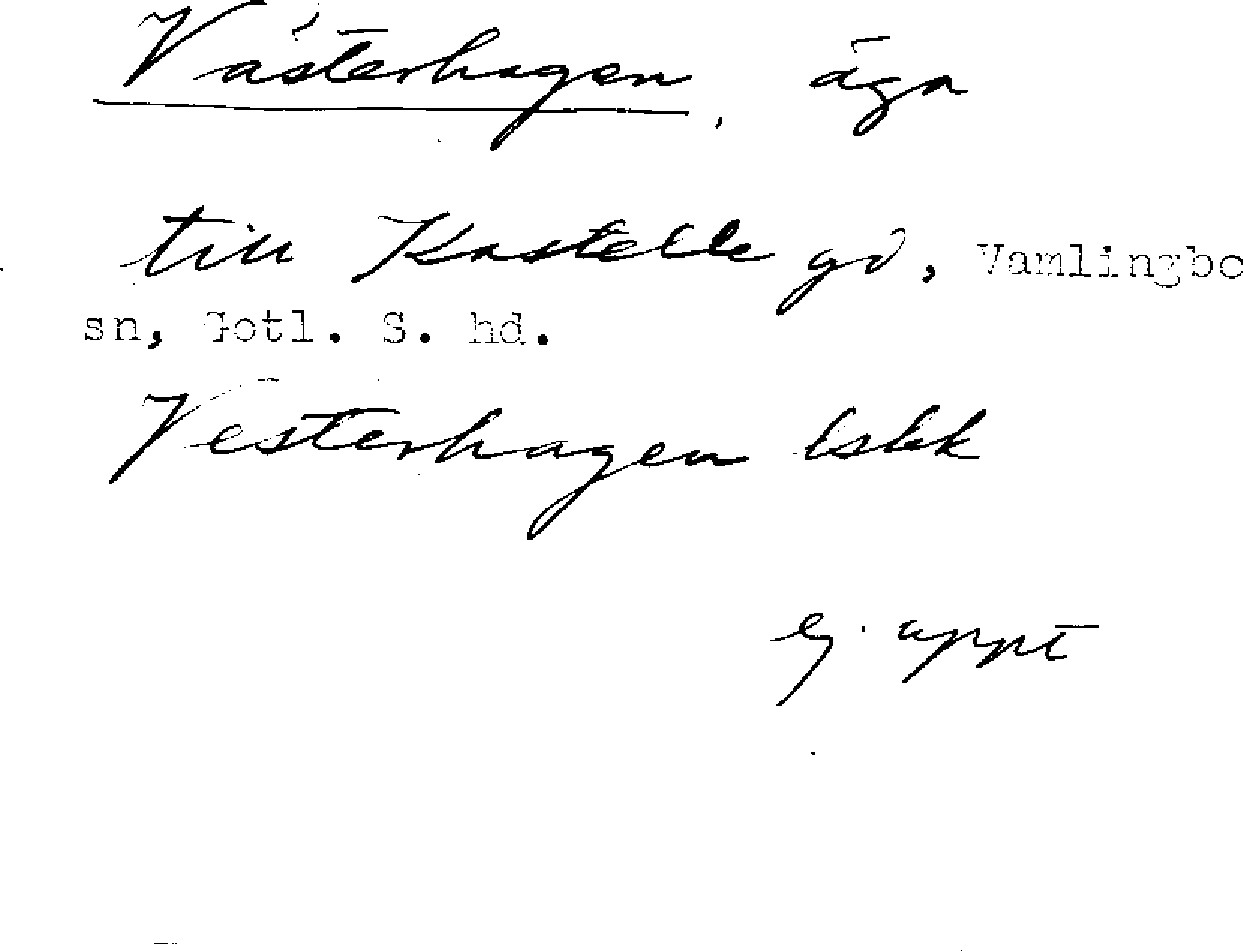 Västerhagen, äga
till Kastelle gd, Vamlingbo
sn, Gotl. S. hd.
Vesterhagen lskk
ej uppt